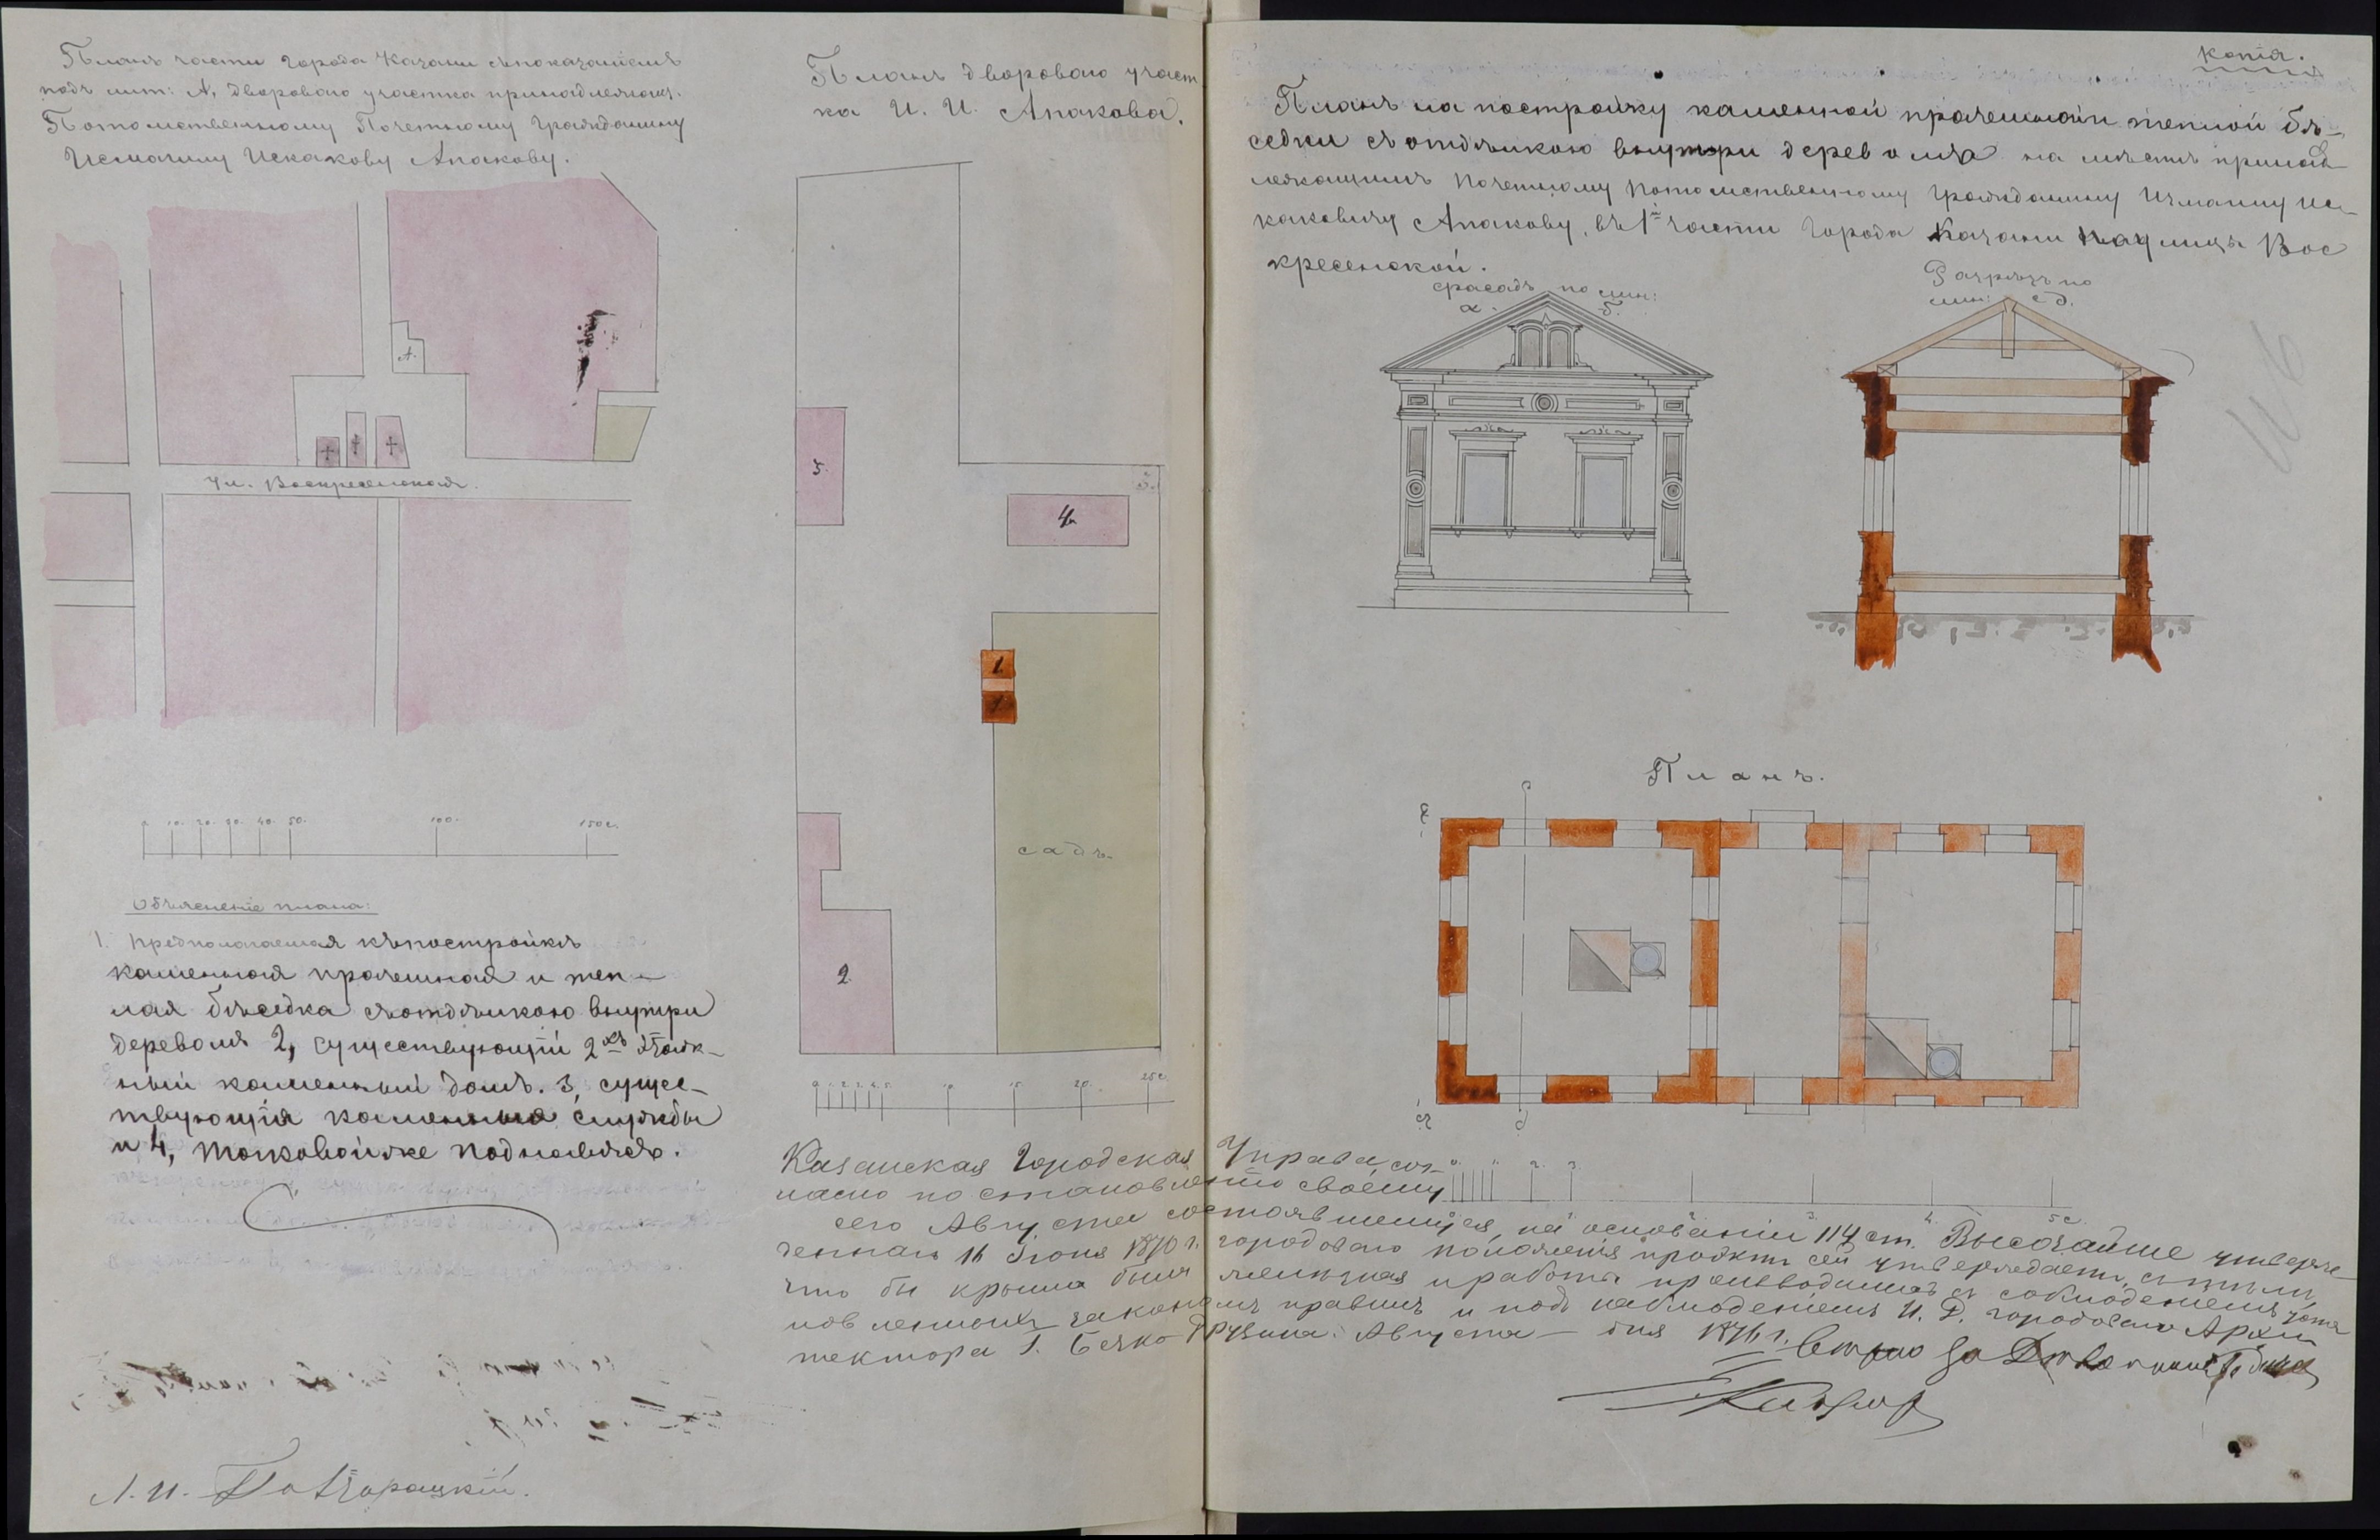 Планъ части города Казани съ показанiемъ
подъ лит: А, двороваго участка принадлежащ.
Потомственному Почетному Гражданину
Исмагилу Искакову Апакову.
А.
Ул. Воскресенская.
0 10. 20. 30. 40. 50. 100. 150 с.
Объясненiе плана:
1. Предполагаемая къ постройкѣ
каменная прачешная и теп-
лая бѣседка съ отдѣлкою внутри
деревомъ 2, существующiй 2хъ этаж-
ный каменный домъ. 3, сущес-
твующiя каменныя службы
и 4, таковой же подновляя.
Л. И.
Планъ двороваго участ
ка И. И. Апакова.
5.
3.
4
1.
1
садъ.
2.
0 1. 2. 3. 4. 5. 10. 15. 20. 25 с.
Копiя.
Планъ на постройку каменной прачешной и теплой бѣ-
седки съ отдѣлкою внутри деревомъ на мѣстѣ принад-
лежащимъ Почетному Потомственному Гражданину Исмагилу Ис-
каковичу Апакову, въ 1й части города Казани на улицѣ Вос
кресенской.
фасадъ по лин:
а. б.
Разрѣзъ по
лин: с д.
Планъ.
0. 1. 2. 3. 5 с.
Казанская Городская Управа, сог-
ласно постановленiю своему
сего Августа состоявшемуся, на основанiи 114 ст. Высочайше утверж-
деннаго 16 Iюня 1870 г. городоваго положенiя проэктъ сей утверждаетъ, съ тѣмъ
что бы крыша была и работы производились съ соблюденiемъ уста
новленныхъ закономъ правилъ и подъ наблюденiемъ И. Д. городоваго Архи
тектора I. Бечко-Друзина. Августа — дня 1876 г.